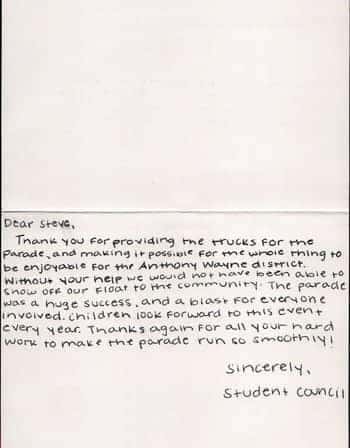 Dear Steve,
Thank you for providing the trucks for the
parade, and making it possible for the whole thing to
be enjoyable for the Anthony Wayne district.
Without your help we would not have been able to
show off our float to the community. The parade
was a huge success, and a blast for everyone
involved. Children look forward to this event
every year. Thanks again for all your hard
work to make the parade run so smoothly!
Sincerely,
Student Council